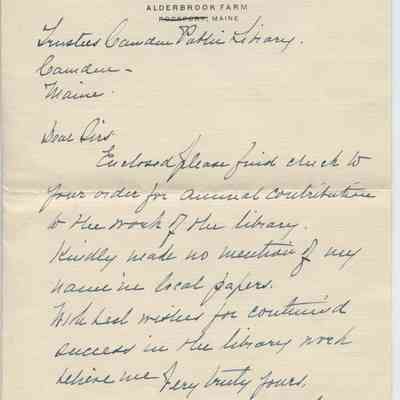 ALDERBROOK FARM
ROCKPORT, MAINE
Trustees Camden Public Library.
Camden –
Maine.
Dear Sirs.
Enclosed please find check to
your order for annual contribution
to the work of the library.
Kindly made no mention of my
name in local papers.
With best wishes for continued
success in the library work
believe me very truly yours.